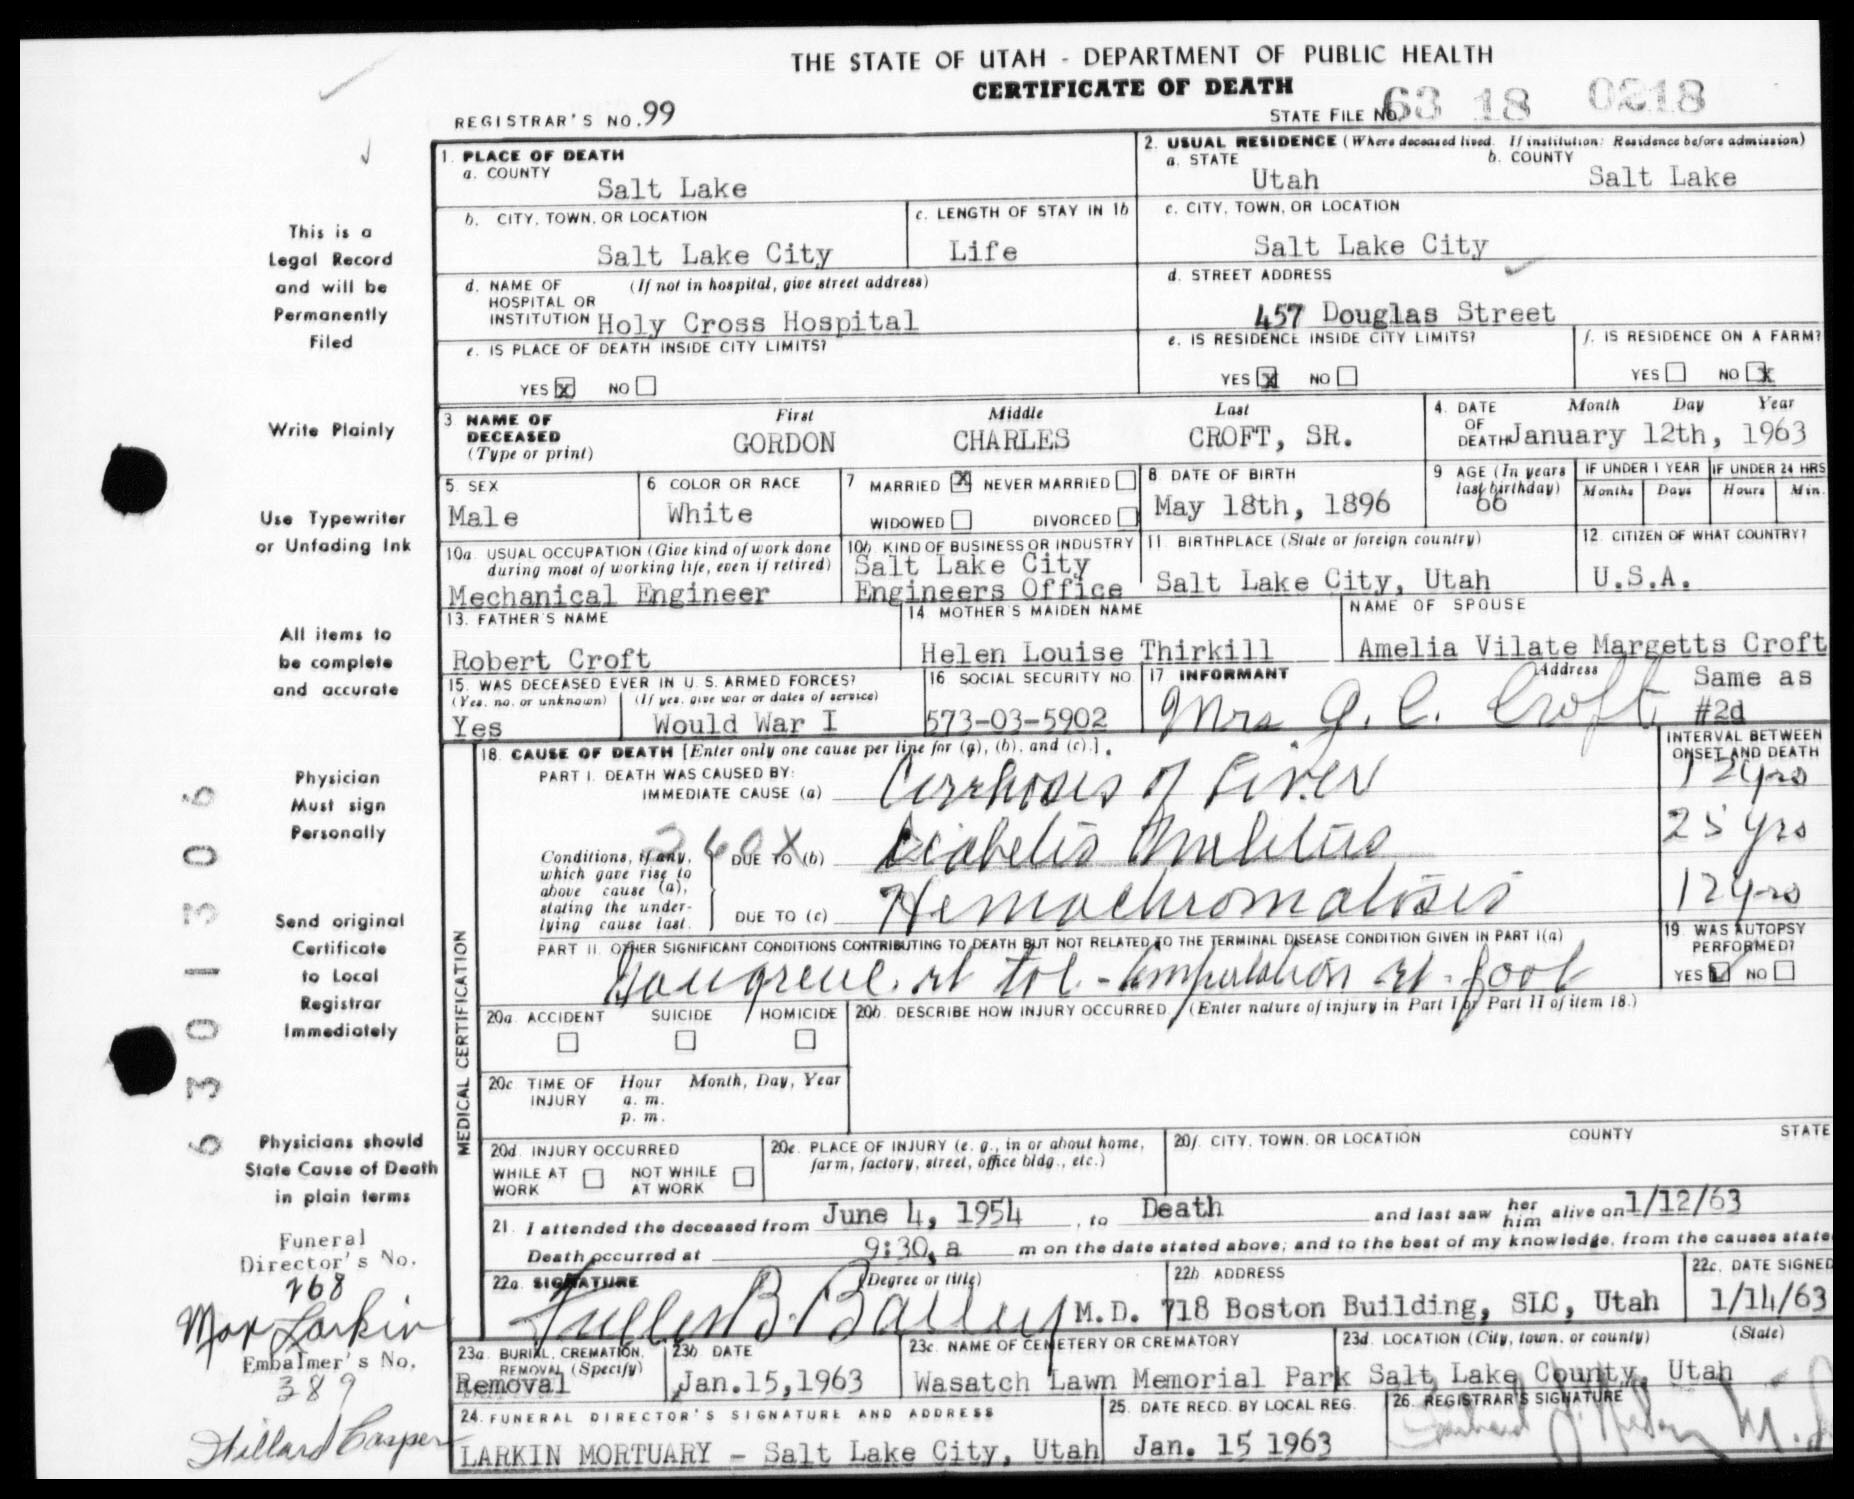 THE STATE OF UTAH - DEPARTMENT OF PUBLIC HEALTH
CERTIFICATE OF DEATH
REGISTRAR'S NO. 99
STATE FILE NO. 63 18 0218
1. PLACE OF DEATH
a. COUNTY
Salt Lake
2. USUAL RESIDENCE (Where deceased lived. If institution: Residence before admission)
a. STATE
Utah
b. COUNTY
Salt Lake
b. CITY, TOWN, OR LOCATION
Salt Lake City
c. LENGTH OF STAY IN 1b
Life
c. CITY, TOWN, OR LOCATION
Salt Lake City
d. NAME OF HOSPITAL OR INSTITUTION (If not in hospital, give street address)
Holy Cross Hospital
d. STREET ADDRESS
457 Douglas Street
e. IS PLACE OF DEATH INSIDE CITY LIMITS?
YES X NO
e. IS RESIDENCE INSIDE CITY LIMITS?
YES X NO
f. IS RESIDENCE ON A FARM?
YES NO X
3 NAME OF DECEASED (Type or print)
First Middle Last
GORDON CHARLES CROFT, SR.
4. DATE OF DEATH Month Day Year
January 12th, 1963
5. SEX
Male
6 COLOR OR RACE
White
7 MARRIED X NEVER MARRIED
WIDOWED DIVORCED
8 DATE OF BIRTH
May 18th, 1896
9 AGE (In years last birthday)
66
IF UNDER 1 YEAR
Months Days
IF UNDER 24 HRS
Hours Min.
10a. USUAL OCCUPATION (Give kind of work done during most of working life, even if retired)
Mechanical Engineer
10b. KIND OF BUSINESS OR INDUSTRY
Salt Lake City
Engineers Office
11. BIRTHPLACE (State or foreign country)
Salt Lake City, Utah
12. CITIZEN OF WHAT COUNTRY?
U.S.A.
13. FATHER'S NAME
Robert Croft
14 MOTHER'S MAIDEN NAME
Helen Louise Thirkill
NAME OF SPOUSE
Amelia Vilate Margetts Croft
15. WAS DECEASED EVER IN U. S. ARMED FORCES?
(Yes, no, or unknown) (If yes, give war or dates of service)
Yes Would War I
16 SOCIAL SECURITY NO.
573-03-5902
17 INFORMANT Address
Mrs G. C. Croft
Same as
#2d
18. CAUSE OF DEATH [Enter only one cause per line for (a), (b), and (c).]
INTERVAL BETWEEN ONSET AND DEATH
PART I. DEATH WAS CAUSED BY:
IMMEDIATE CAUSE (a) Cirrhosis of Liver 12 yrs
260X
Conditions, if any, which gave rise to above cause (a), stating the underlying cause last.
DUE TO (b) Diabetis Mellitus 25 yrs
DUE TO (c) Hemachromatosis 12 yrs
PART II. OTHER SIGNIFICANT CONDITIONS CONTRIBUTING TO DEATH BUT NOT RELATED TO THE TERMINAL DISEASE CONDITION GIVEN IN PART I(a)
Gangrene. rt toe. - Amputation rt. foot
19. WAS AUTOPSY PERFORMED?
YES NO
MEDICAL CERTIFICATION
20a ACCIDENT SUICIDE HOMICIDE
20b. DESCRIBE HOW INJURY OCCURRED. (Enter nature of injury in Part I or Part II of item 18.)
20c TIME OF INJURY Hour a. m. p. m. Month, Day, Year
20d. INJURY OCCURRED
WHILE AT WORK NOT WHILE AT WORK
20e. PLACE OF INJURY (e. g., in or about home, farm, factory, street, office bldg., etc.)
20f. CITY, TOWN, OR LOCATION COUNTY STATE
21. I attended the deceased from June 4, 1954, to Death and last saw her him alive on 1/12/63
Death occurred at 9:30 a m on the date stated above; and to the best of my knowledge, from the causes state
22a. SIGNATURE (Degree or title)
Fuller B. Bailey M.D.
22b. ADDRESS
718 Boston Building, SLC, Utah
22c. DATE SIGNED
1/14/63
23a. BURIAL, CREMATION, REMOVAL (Specify)
Removal
23b DATE
Jan.15,1963
23c. NAME OF CEMETERY OR CREMATORY
Wasatch Lawn Memorial Park
23d. LOCATION (City, town, or county) (State)
Salt Lake County, Utah
24. FUNERAL DIRECTOR'S SIGNATURE AND ADDRESS
LARKIN MORTUARY - Salt Lake City, Utah
25. DATE RECD. BY LOCAL REG.
Jan. 15 1963
26. REGISTRAR'S SIGNATURE
This is a
Legal Record
and will be
Permanently
Filed
Write Plainly
Use Typewriter
or Unfading Ink
All items to
be complete
and accurate
Physician
Must sign
Personally
Send original
Certificate
to Local
Registrar
Immediately
Physicians should
State Cause of Death
in plain terms
Funeral
Director's No.
268
Max Larkin
Embalmer's No.
389
Hillard Casper
6301306